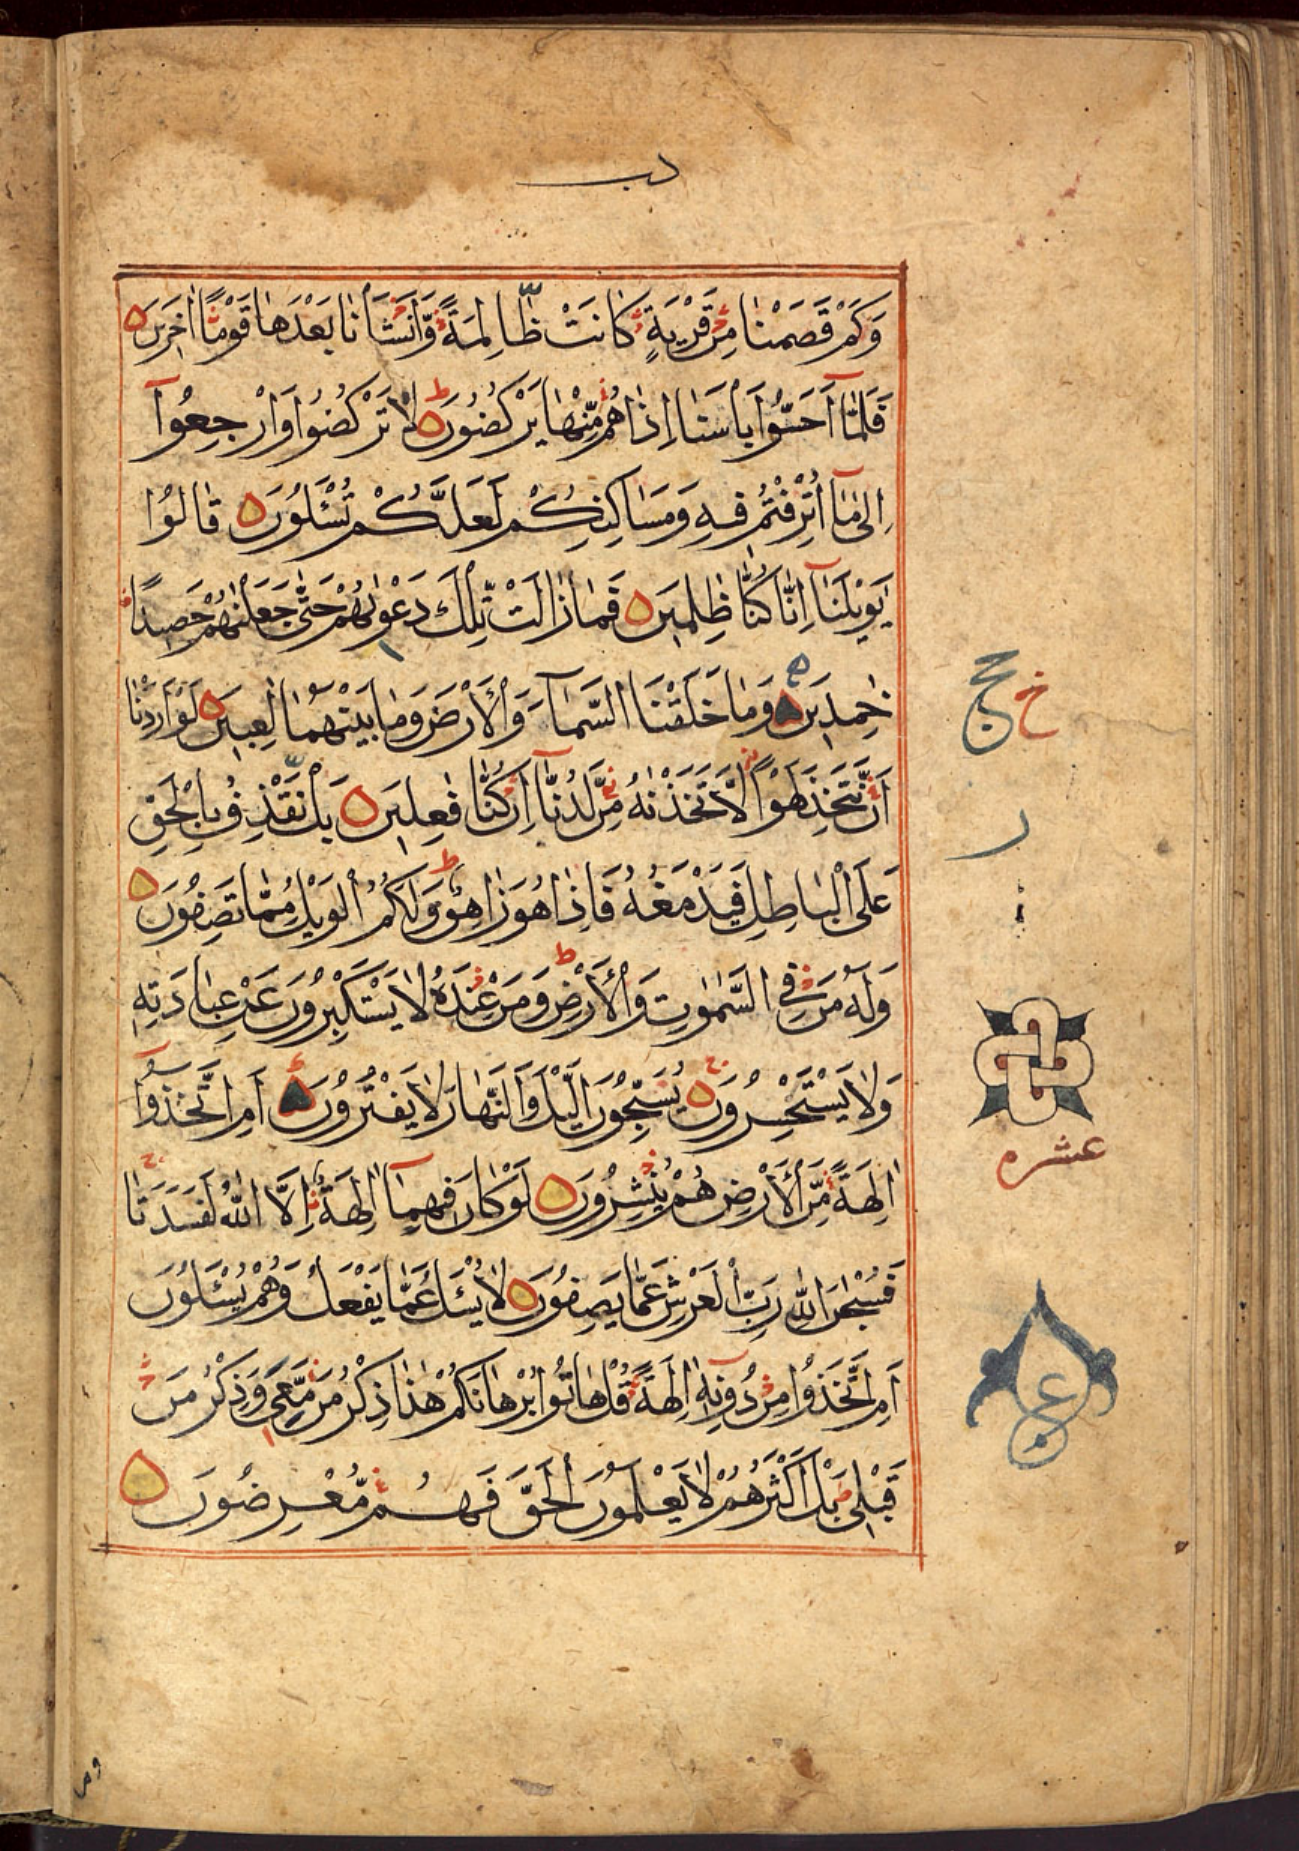 دب
وَكَمْ قَصَمْنَا مِنْ قَرْيَةٍ كَانَتْ ظَالِمَةً وَّاَنْشَأْنَا بَعْدَهَا قَوْمًا اٰخَرِينَ
فَلَمَّآ اَحَسُّوا بَأْسَنَا اِذَا هُمْ مِّنْهَا يَرْكُضُونَ لَا تَرْكُضُوا وَارْجِعُوٓا
اِلٰى مَآ اُتْرِفْتُمْ فِيهِ وَمَسَاكِنِكُمْ لَعَلَّكُمْ تُسْئَلُونَ قَالُوا
يٰوَيْلَنَآ اِنَّا كُنَّا ظٰلِمِينَ فَمَا زَالَتْ تِّلْكَ دَعْوٰىهُمْ حَتّٰى جَعَلْنٰهُمْ حَصِيدًا
خٰمِدِينَ وَمَا خَلَقْنَا السَّمَآءَ وَالْاَرْضَ وَمَا بَيْنَهُمَا لٰعِبِينَ لَوْ اَرَدْنَا
اَنْ نَّتَّخِذَ لَهْوًا لَّاتَّخَذْنٰهُ مِنْ لَّدُنَّآ اِنْ كُنَّا فٰعِلِينَ بَلْ نَقْذِفُ بِالْحَقِّ
عَلَى الْبَاطِلِ فَيَدْمَغُهُ فَاِذَا هُوَ زَاهِقٌ وَلَكُمُ الْوَيْلُ مِمَّا تَصِفُونَ
وَلَهُ مَنْ فِي السَّمٰوٰتِ وَالْاَرْضِ وَمَنْ عِنْدَهُ لَا يَسْتَكْبِرُونَ عَنْ عِبَادَتِهِ
وَلَا يَسْتَحْسِرُونَ يُسَبِّحُونَ الَّيْلَ وَالنَّهَارَ لَا يَفْتُرُونَ اَمِ اتَّخَذُوٓا
اٰلِهَةً مِّنَ الْاَرْضِ هُمْ يُنْشِرُونَ لَوْ كَانَ فِيهِمَآ اٰلِهَةٌ اِلَّا اللّٰهُ لَفَسَدَتَا
فَسُبْحٰنَ اللّٰهِ رَبِّ الْعَرْشِ عَمَّا يَصِفُونَ لَا يُسْئَلُ عَمَّا يَفْعَلُ وَهُمْ يُسْئَلُونَ
اَمِ اتَّخَذُوا مِنْ دُونِهٓ اٰلِهَةً قُلْ هَاتُوا بُرْهَانَكُمْ هٰذَا ذِكْرُ مَنْ مَّعِيَ وَذِكْرُ مَنْ
قَبْلِي بَلْ اَكْثَرُهُمْ لَا يَعْلَمُونَ الْحَقَّ فَهُمْ مُّعْرِضُونَ
عشره
ع